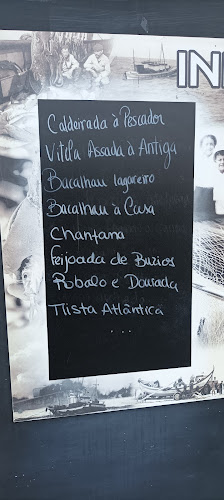 IN
Caldeirada à Pescador
Vitela Assada à Antiga
Bacalhau lagareiro
Bacalhau à Casa
Chanfana
Feijoada de Buzios
Robalo e Dourada
Tiista Atlântica
...